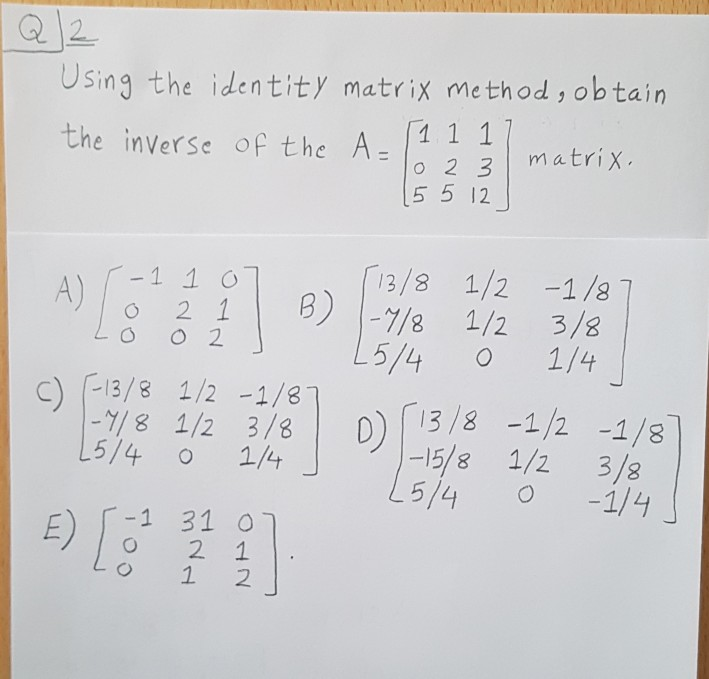 Q)2
Using the identity matrix method, obtain
the inverse of the A = [1 1 1
0 2 3
5 5 12] matrix.
A) [-1 1 0
0 2 1
0 0 2]
B) [13/8 1/2 -1/8
-7/8 1/2 3/8
5/4 0 1/4]
C) [-13/8 1/2 -1/8
-7/8 1/2 3/8
5/4 0 1/4]
D) [13/8 -1/2 -1/8
-15/8 1/2 3/8
5/4 0 -1/4]
E) [-1 31 0
0 2 1
0 1 2].